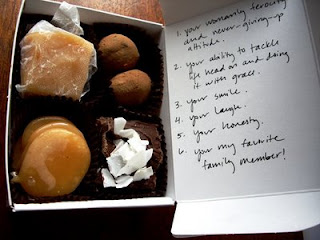 1. your womanly ferocity
and never-giving-up
attitude.
2. your ability to tackle
life head on and doing
it with grace.
3. your smile.
4. your laugh.
5. your honesty.
6. your my favorite
family member!